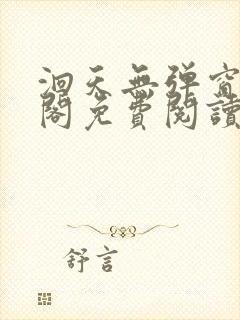 洄天無弹窗
閣免費閱讀
舒言